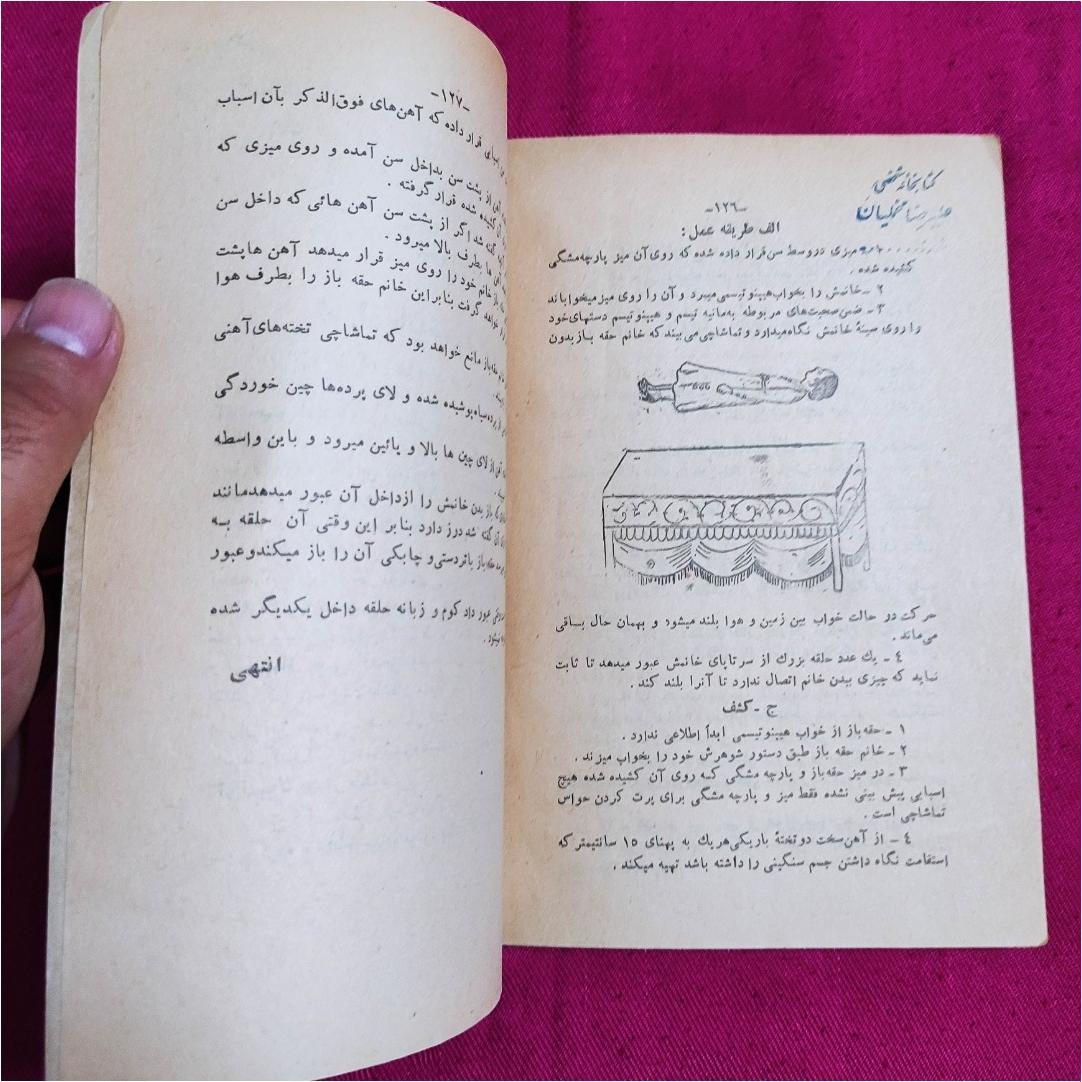 کتابخانه شخصی
علیرضا
-۱۲٦-
الف طریقه عمل :
میزی در وسط سن قرار داده شده که روی آن میز پارچه مشگی
کشیده شده .
۲ -خانمش را بخواب هیپنوتیسمی میبرد و آن را روی میز میخواباند
۳ - ضمن صحبت‌های مربوطه به مانیه تیسم و هیپنوتیسم دستهای خود
را روی سینهٔ خانمش نگاه میدارد و تماشاچی می بیند که خانم حقه باز بدون
حرکت در حالت خواب بین زمین و هوا بلند میشود و بهمان حال باقی
می‌ماند .
٤ - یک عدد حلقه بزرک از سر تاپای خانمش عبور میدهد تا ثابت
نماید که چیزی ببدن خانم اتصال ندارد تا آنرا بلند کند .
ج - کشف
۱ - حقه‌باز از خواب هیپنوتیسمی ابداً اطلاعی ندارد .
۲ - خانم حقه باز طبق دستور شوهرش خود را بخواب میزند .
۳ - در میز حقه‌باز و پارچه مشکی که روی آن کشیده شده هیچ
اسبابی پیش بینی نشده فقط میز و پارچه مشگی برای پرت کردن حواس
تماشاچی است .
٤ - از آهن سخت دو تختهٔ باریکی هریك به پهنای ۱٥ سانتیمتر که
استقامت نگاه داشتن جسم سنگینی را داشته باشد تهیه میکند .
-۱۲۷-
قرار داده که آهن‌های فوق‌الذکر بآن اسباب
از پشت سن بداخل سن آمده و روی میزی که
کشیده شده قرار گرفته .
گفته شد اگر از پشت سن آهن هائی که داخل سن
ها بطرف بالا میرود .
باز خانم خود را روی میز قرار میدهد آهن ها پشت
خواهد گرفت بنابراین خانم حقه باز را بطرف هوا
حقه‌باز مانع خواهد بود که تماشاچی تخته‌های آهنی
پرده سیاه پوشیده شده و لای پرده‌ها چین خوردگی
از لای چین ها بالا و پائین میرود و باین واسطه
باز بدن خانمش را ازداخل آن عبور میدهد مانند
آن گفته شد درز دارد بنابر این وقتی آن حلقه به
حقه باز باتردستی و چابکی آن را باز میکند و عبور
عبور داد کوم و زبانه حلقه داخل یکدیگر شده
انتهی